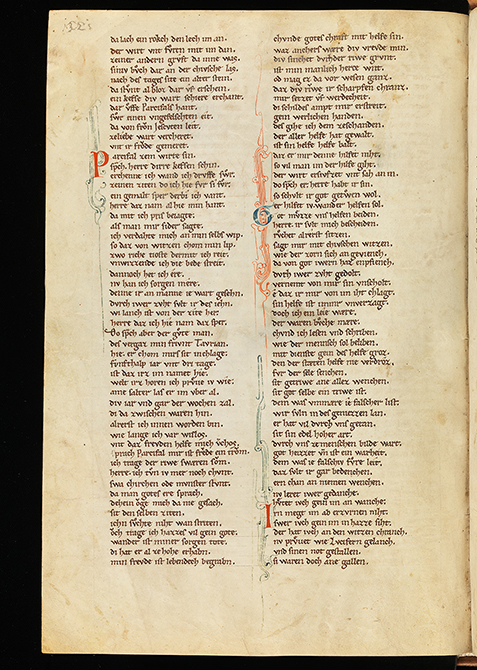 da lach ein rokch den leech im an.
der wirt vnt fvrten mit im dan.
zeiner andern grvft da inne was.
sinv bvch dar an der chivsche las.
nach des tages site ein alter stein.
da stvnt al bloz dar vf erschein.
ein kefse div wart schiere erchant.
dar vffe Parcifals hant.
swur einen vngefelscheten eit.
da von frôn Ieschvten leit.
ze liebe wart vercheret.
vnt ir frôde gemeret.
Parcifal zem wirte sin.
sprch herre dirre kefsen schin.
erchenne ich wand ich drvffe swr.
zeinen ziten do ich hie fvr si fvr.
ein gemalt sper derbi ich vant.
herre daz nam al hie min hant.
da mit ich pris beiagte.
als man mir sider sagte.
ich verdahte mich an min selbs wip.
so daz von witzen chom min lip.
zwo riche tioste dermit ich reit.
vnwizzende ich die bede streit.
dannoch het ich ere.
nv han ich sorgen mere.
denne ir an manne ie wart gesehn.
dvrch iwer zvht svlt ir des iehn.
wi lanch ist von der zite her.
herre daz ich hie nam daz sper.
Do sprch aber der gvte man.
des vergaz min frivnt Tavrian.
hie. er chom mirs sit in chlage.
fvnfthalp iar vnt dri tage.
ist daz irz im namet hie.
welt irz horen ich prvve iv wie.
ame salter las er im vber al.
div iar vnd gar der wochen zal.
di da zwischen waren hin.
alrest ich innen worden bin.
wie lange ich var wislos.
vnt daz freyden helfe mich verchos.
sprach Parcifal mir ist frôde ein trovm.
ich trage der riwe swaren sovm.
herre. ich tvn iv mer noch chvnt.
swa chirchen ode mvnster stvnt.
da man gotes ere sprach.
dehein oge mich da nie gesach.
sit den selben ziten.
ichn svchte niht wan striten.
och trage ich hazzes vil gein gote.
wander ist miner sorgen tote.
di hat er al ze hohe erhabn.
min freyde ist lebendech begrabn.
chvnde gotes chraft mit helfe sin.
waz anchers were div vrevde min.
div sinchet dvrh der riwe grvnt.
ist min manlich herze wnt.
od mag ez da vor wesen ganz.
daz div riwe ir scharpfen chranz.
mir setzet vf werdecheit.
di schildes ampt mir erstreit.
gein werlichen handen.
des gihe ich dem ze schanden.
der aller helfe hat gewalt.
ist sin helfe helfe balt.
daz er mir denne hilfet niht.
so vil man im der hilfe giht.
der wirt ersivfzet vnt sah an in.
do sprch er herre habt ir sin.
so schvlt ir got getrwen wol.
er hilft iv wander helfen sol.
Got mvzze vns helfen beiden.
herre ir svlt mich bescheiden.
rvchet alrerst sitzen.
sagt mir mit chivschen witzen.
wie der zorn sich an gevienc.
da von got iwern haz enpfiench.
dvrh iwer zvht gedolt.
vernemt von mir sin vnscholt.
e daz ir mir von im iht chlagt.
sin helfe ist immer vnverzagt.
doch ich ein leie were.
der waren bvche mere.
chvnd ich lesen vnd schriben.
wie der mensch sol beliben.
mit dienste gein des helfe groz.
den der stæten helfe nie verdroz.
fvr der sele senchen.
sit getriwe ane allez wenchen.
sit got selbe ein triwe ist.
dem was vnmære ie falscher list.
wir svln in des geniezzen lan.
er hat vil dvrch vns getan.
sit sin edel hoher art.
dvrch vns ze menschen bilde wart.
got heizzet vn ist ein warheit.
dem was ie falschiv fvre leit.
daz svlt ir gar bedenchen.
ern chan an niemen wenchen.
nv leret iwer gedanche.
hvtet ivch gein im an wanche.
Irn megt im ab erzvrnen niht.
swer ivch gein im in hazze siht.
der hat ivch an den witzen chranch.
nv prvvet wie Lvcifern gelanch.
vnd sinen notgstallen.
si waren doch ane gallen.